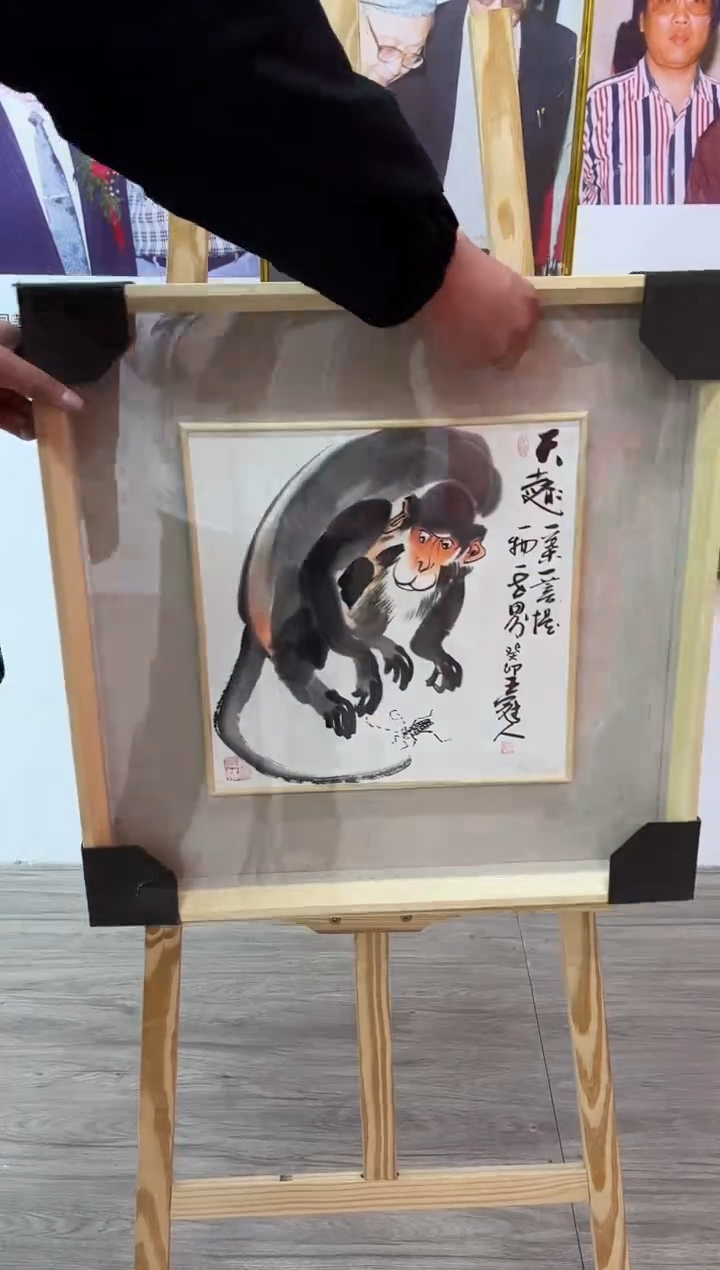 天趣
一叶一菩提
一物一世界
癸卯王冠人